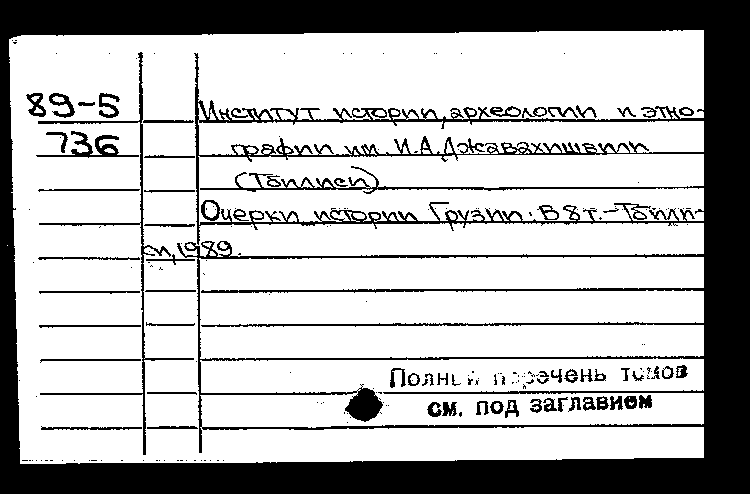 89-5 Институт истории, археологии и этно-
736 графии им. И.А.Джавахишвили
(Тбилиси)
Очерки истории Грузии: В 8 т.-Тбили-
си, 1989.
Полный перечень томов
см. под заглавием